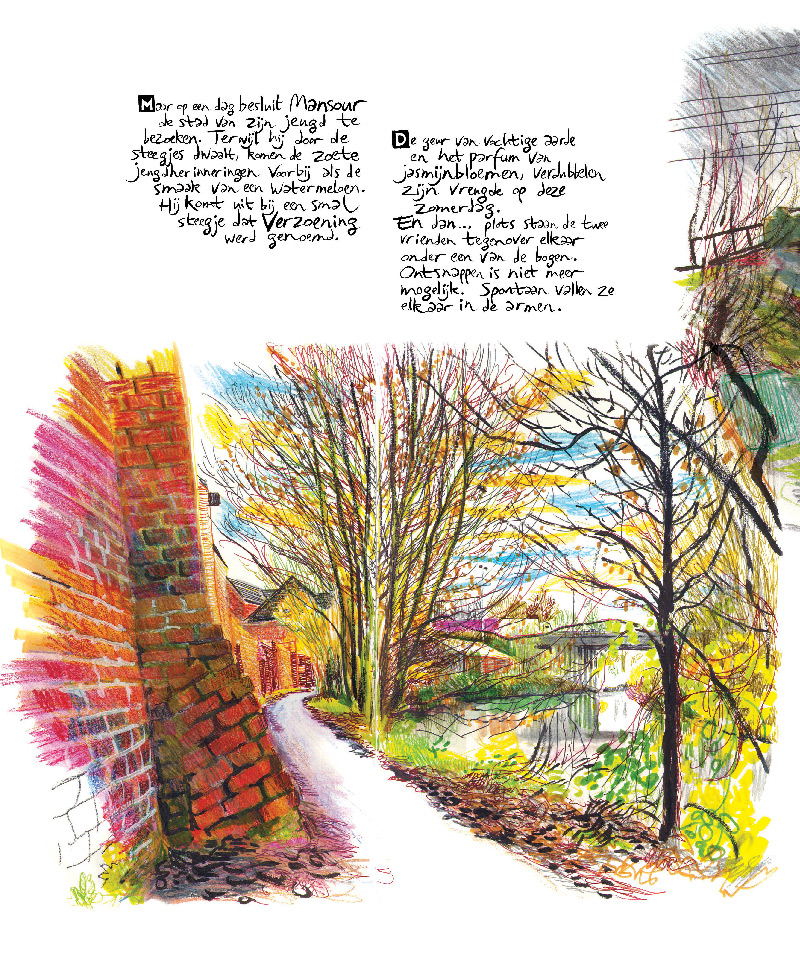 Maar op een dag besluit Mansour
de stad van zijn jeugd te
bezoeken. Terwijl hij door de
steegjes dwaalt, komen de zoete
jeugdherinneringen voorbij als de
smaak van een watermeloen.
Hij komt uit bij een smal
steegje dat Verzoening
werd genoemd.
De geur van vochtige aarde
en het parfum van
jasmijnbloemen, verdubbelen
zijn vreugde op deze
zomerdag.
En dan... plots staan de twee
vrienden tegenover elkaar
onder een van de bogen.
Ontsnappen is niet meer
mogelijk. Spontaan vallen ze
elkaar in de armen.